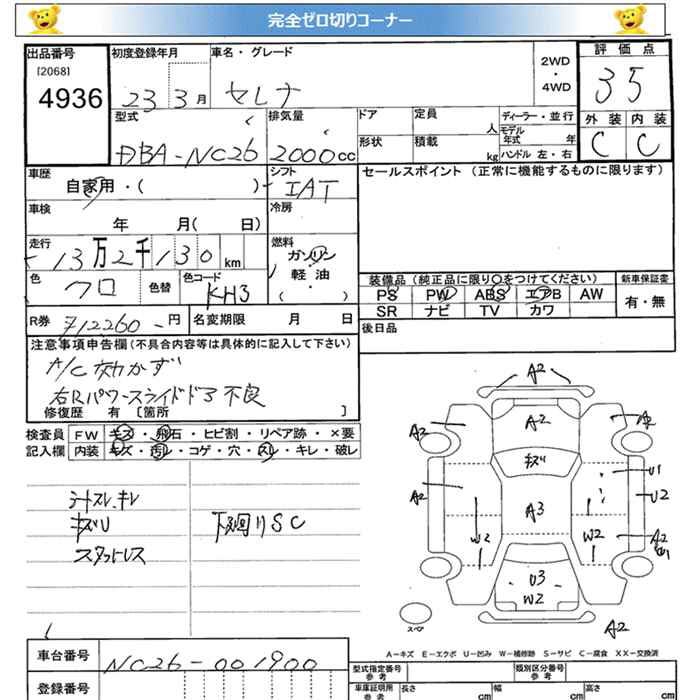 完全ゼロ切りコーナー
出品番号
[2068]
4936
初度登録年月
23 3月
車名・グレード
セレナ
2WD
・
4WD
評価点
3 5
外装 内装
C C
型式
DBA-NC26
排気量
2000cc
ドア
定員
人
ディーラー・並行
モデル年式 年
形状
積載
kg
ハンドル 左・右
車歴
自家用・( )
シフト
IAT
セールスポイント (正常に機能するものに限ります)
車検
年 月( 日)
冷房
走行
13万2千130km
燃料
ガソリン
軽・油
( ・ )
色
クロ
色替
色コード
KH3
装備品 (純正品に限り○をつけてください)
新車保証書
PS PW ABS エアB AW
SR ナビ TV カワ
有・無
R券 ¥12260-円
名変期限 月 日
後日品
注意事項申告欄 (不具合内容等は具体的に記入して下さい)
A/C 効かず
右Rパワースライドドア不良
修復歴 有 [箇所 ]
検査員
記入欄
FW キズ・飛石・ヒビ割・リペア跡・×要
内装 キズ・汚レ・コゲ・穴・スレ・キレ・破レ
シートスレ、キレ
キズU
スタットレス
下廻りSC
A2
A2
A2
キズ
A2
A2
A3
W2
W2
U1
U2
A2
U3
W2
A2
スペア
A-キズ E-エクボ U-凹み W-補修跡 S-サビ C-腐食 XX-交換済
車台番号
NC26-001900
登録番号
型式指定番号
参考
類別区分番号
参考
車庫証明用
参考
長さ cm
幅 cm
高さ cm